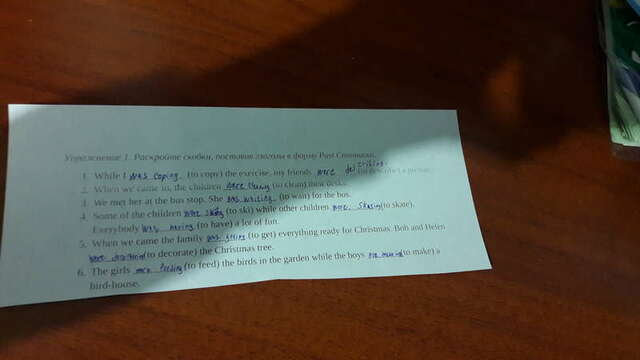 Упражнение 1. Раскройте скобки, поставив глаголы в форму Past Continuous.
1. While I was coping (to copy) the exercise, my friends were describing (to describe) a picture.
2. When we came in, the children were (to clean) their desks.
3. We met her at the bus stop. She was waiting (to wait) for the bus.
4. Some of the children were (to ski) while other children were (to skate).
Everybody was having (to have) a lot of fun.
5. When we came the family was (to get) everything ready for Christmas. Bob and Helen
were (to decorate) the Christmas tree.
6. The girls were feeding (to feed) the birds in the garden while the boys (to make) a
bird-house.